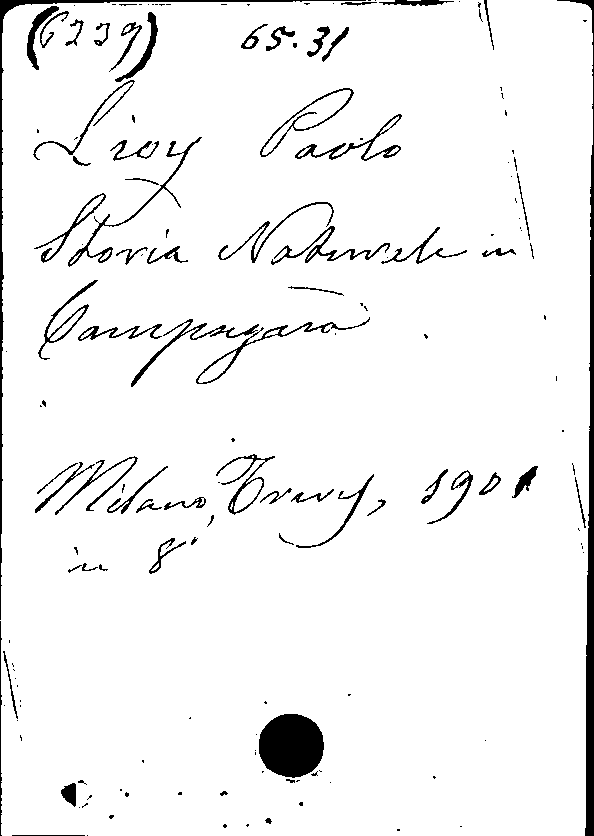 (6239) 65.31
Lioy Paolo
Storia Naturale in
Campagna
Milano, Treves, 1901
in 8°